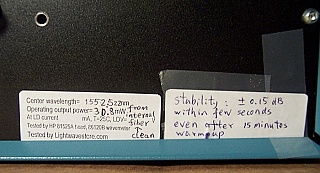 Center wavelength= 1552.522nm
Operating output power= 30.8mW from internal fiber
At LD current mA, T=25C, LDV=
Tested by HP 81525A head, 86120B wavemeter
Tested by Lightwavestore.com clean
stability: ± 0.15 dB
within few seconds
even after 15 minutes
warmup